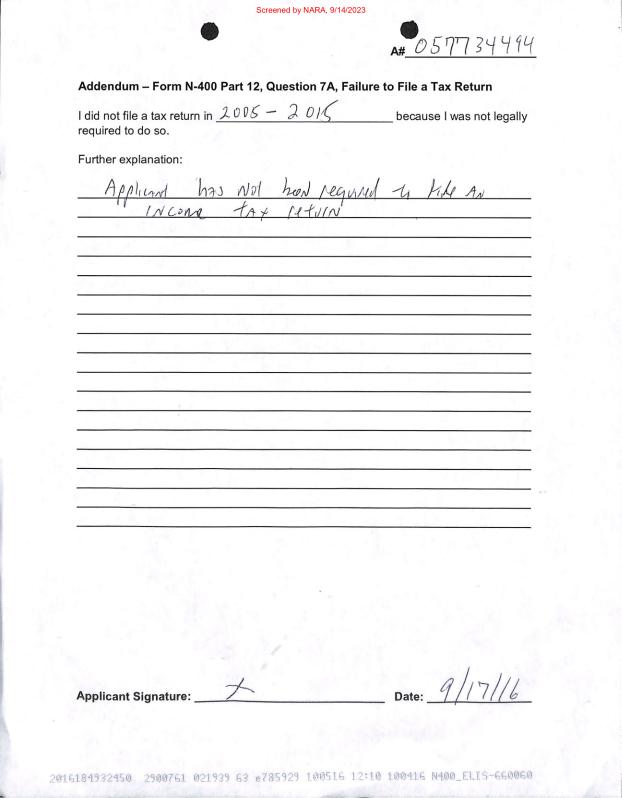 Screened by NARA, 9/14/2023
A# 057734494
Addendum – Form N-400 Part 12, Question 7A, Failure to File a Tax Return
I did not file a tax return in 2005 - 2015 because I was not legally
required to do so.
Further explanation:
Applicant has not been required to file an
income tax return
Applicant Signature: X Date: 9/17/16
2016184932450 2900761 021939 63 e785929 100516 12:10 100416 N400_ELIS-660060